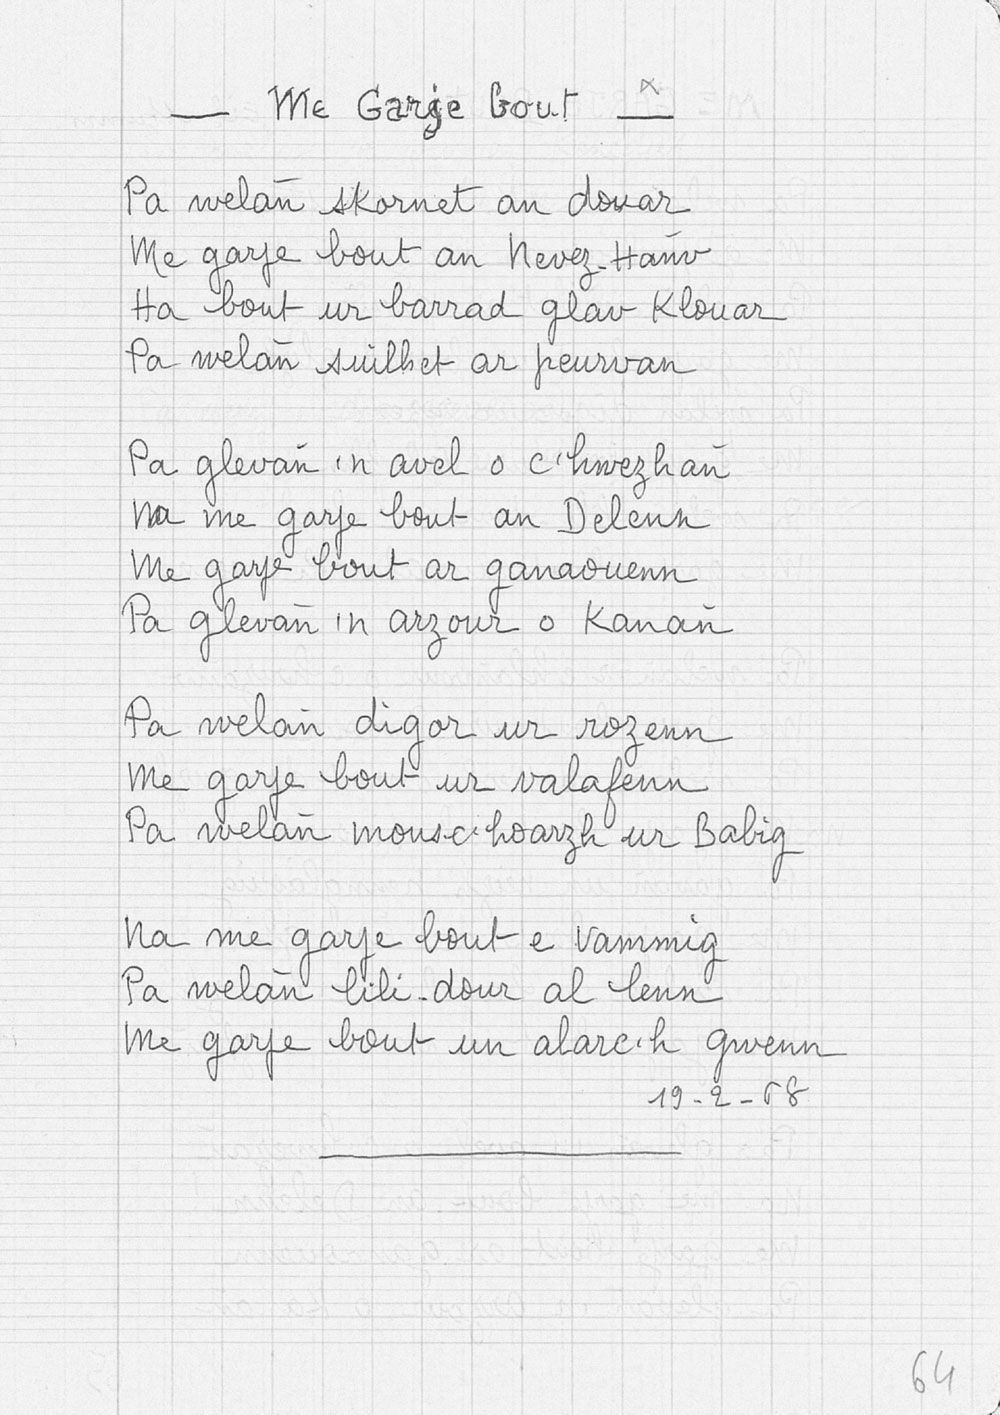 — Me Garje bout — x
Pa welañ skornet an douar
Me garje bout an Nevez-Hañv
Ha bout ur barrad glav Klouar
Pa welañ suilhet ar peurvan
Pa glevañ 'n avel o c'hwezhañ
Na me garje bout an Delenn
Me garje bout ar ganaouenn
Pa glevañ 'n arzour o Kanañ
Pa welañ digor ur rozenn
Me garje bout ur valafenn
Pa welañ mousc'hoarzh ur Babig
Na me garje bout e Vammig
Pa welañ lili-dour al lenn
Me garje bout un alarc'h gwenn
19-2-68
64